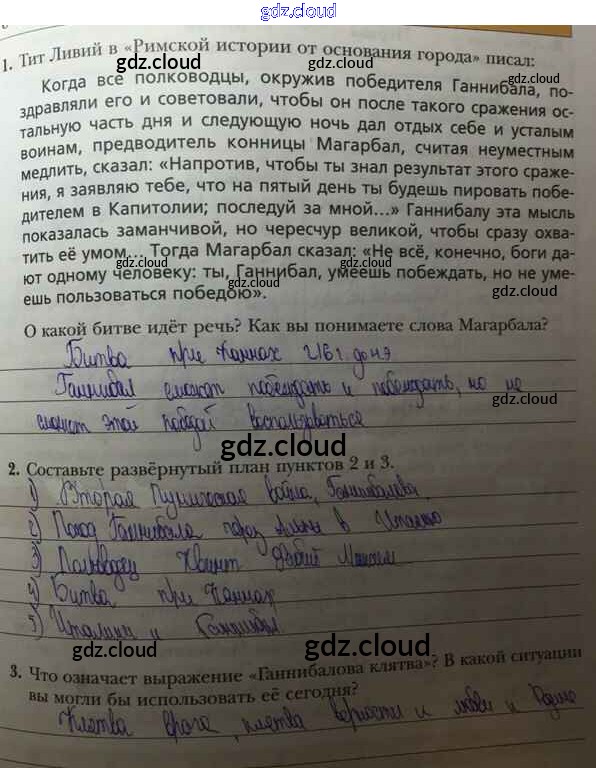 gdz.cloud
1. Тит Ливий в «Римской истории от основания города» писал:
Когда все полководцы, окружив победителя Ганнибала, по-
здравляли его и советовали, чтобы он после такого сражения ос-
тальную часть дня и следующую ночь дал отдых себе и усталым
воинам, предводитель конницы Магарбал, считая неуместным
медлить, сказал: «Напротив, чтобы ты знал результат этого сраже-
ния, я заявляю тебе, что на пятый день ты будешь пировать побе-
дителем в Капитолии; последуй за мной...» Ганнибалу эта мысль
показалась заманчивой, но чересчур великой, чтобы сразу охва-
тить её умом... Тогда Магарбал сказал: «Не всё, конечно, боги да-
ют одному человеку: ты, Ганнибал, умеешь побеждать, но не уме-
ешь пользоваться победою».
О какой битве идёт речь? Как вы понимаете слова Магарбала?
Битва при Каннах 216 г. до нэ
Ганнибал сможет побеждать и побеждать, но не
сможет этой победой воспользоваться
2. Составьте развёрнутый план пунктов 2 и 3.
1) Вторая Пуническая война, Ганнибалова
2) Поход Ганнибала через Альпы в Италию
3) Полководец Квинт Фабий Максим
4) Битва при Каннах
5) Италики и Ганнибал
3. Что означает выражение «Ганнибалова клятва»? В какой ситуации
вы могли бы использовать её сегодня?
Клятва врага, клятва верности и любви к Родине